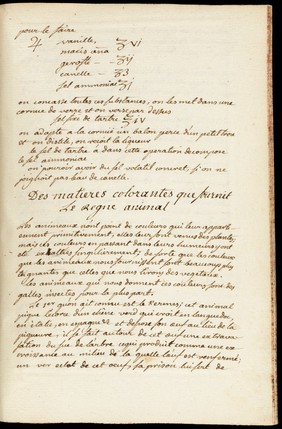 pour le faire
♃ vanille, ℥ vi
macis ana
gerofle — ℥ ij
canelle — ℥ 3
sel ammoniac ℥ j
on concasse toutes ces substances, on les met dans une
cornue de verre et on verse par dessus
sel fixe de tartre ℥ iv
on adapte a la cornue un balon percé d'un petit trou
et on distile, on reçoit la liqueur
le sel de tartre a dans cette operation decomposé
le sel ammoniac
on pouroit avoir du sel volatil concret si on ne
joignoit pas l'eau de canelle
Des matieres colorantes que fournit
Le Regne animal
Les animaux n'ont point de couleurs qui leur apparti-
ennent primitivement, elles leur sont venues des plantes
mais ces couleurs en passant dans leurs humeurs y ont
eté exaltées singulierement; de sorte que les couleurs
que les animaux nous fournissent sont beaucoup plus
eclatantes que celles que nous tirons des vegetaux.
Les animaux qui nous donnent ces couleurs sont des
galles insectes pour la pluspart.
Le 1er qu'on ait connu est le Kermes; cet animal
pique l'ecorce d'un chêne verd qui croit en languedoc,
en italie, en espagne et depose son œuf au lieu de la
piquure; il se fait autour de cet œuf une extrava-
sation du suc de l'arbre ce qui produit comme une ex-
croissance au milieu de la quelle l'œuf est renfermé;
un ver eclot de cet œuf, sa prison lui sert de